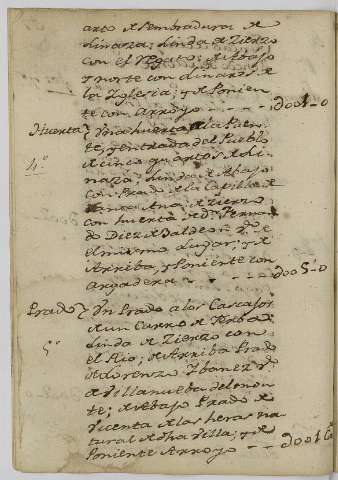 arto de Sembradura de
Linaza; Linda de Zierzo
con el Regato; de Abajo
y norte con Linares de
la Yglesia; y de Ponien
te con Arroyo - - - - d001-0
Huerta} Yna huerta a la Puen
te, y entrada del Pueblo
4º de cinco quartos de Li
naza; Linda de Abajo
con Prado de la Capilla de
Santa Ana de Zierzo
con huerta de Dn Fernan
do Diez de Baldeon Vº de
el mismo Lugar; y de
Arriba, y Poniente con
Arpadera - - - - d005-0
Prado} Yn Prado a los Cascajos
de un Carro de Yerba
5º Linda de Zierzo con
el Rio; de Arriba Prado
de Lorenzo Ybanez Vº
de Villanueba del mon
te; de Abajo Prado de
Vicenta de las heras na
tural de dha Villa; y de
Poniente Arroyo - - d001